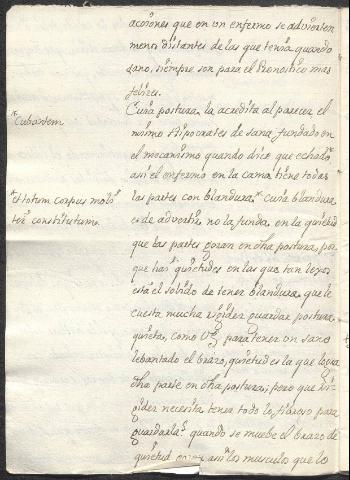 acciones que en un enfermo se advierten
menos distantes de las que tenia quando
sano, siempre son para el Pronostico mas
felices.
Cuia postura la acredita al parecer el
mismo Hipocrates de sana, fundado en
*Cubantem
el mecanismo quando dice que echado*
asi el enfermo en la cama tiene todas
las partes con blandura,* cuia blandura
*et totum corpus moli
ter constitutum.
es de advertir no la funda en la quietud
que las partes gozan en dha postura, por
que hai quietudes en las que tan lexos
está el sólido de tener blandura, que le
cuesta mucha rigidez guardar postura
quieta, como Vg. para tener un sano
lebantado el brazo, quietud es la que logra
dha parte en dha postura; pero que
gidez necesita tenia todo lo fibroso para
guardarla? quando se muebe el brazo de
quietud asi los musculos que lo